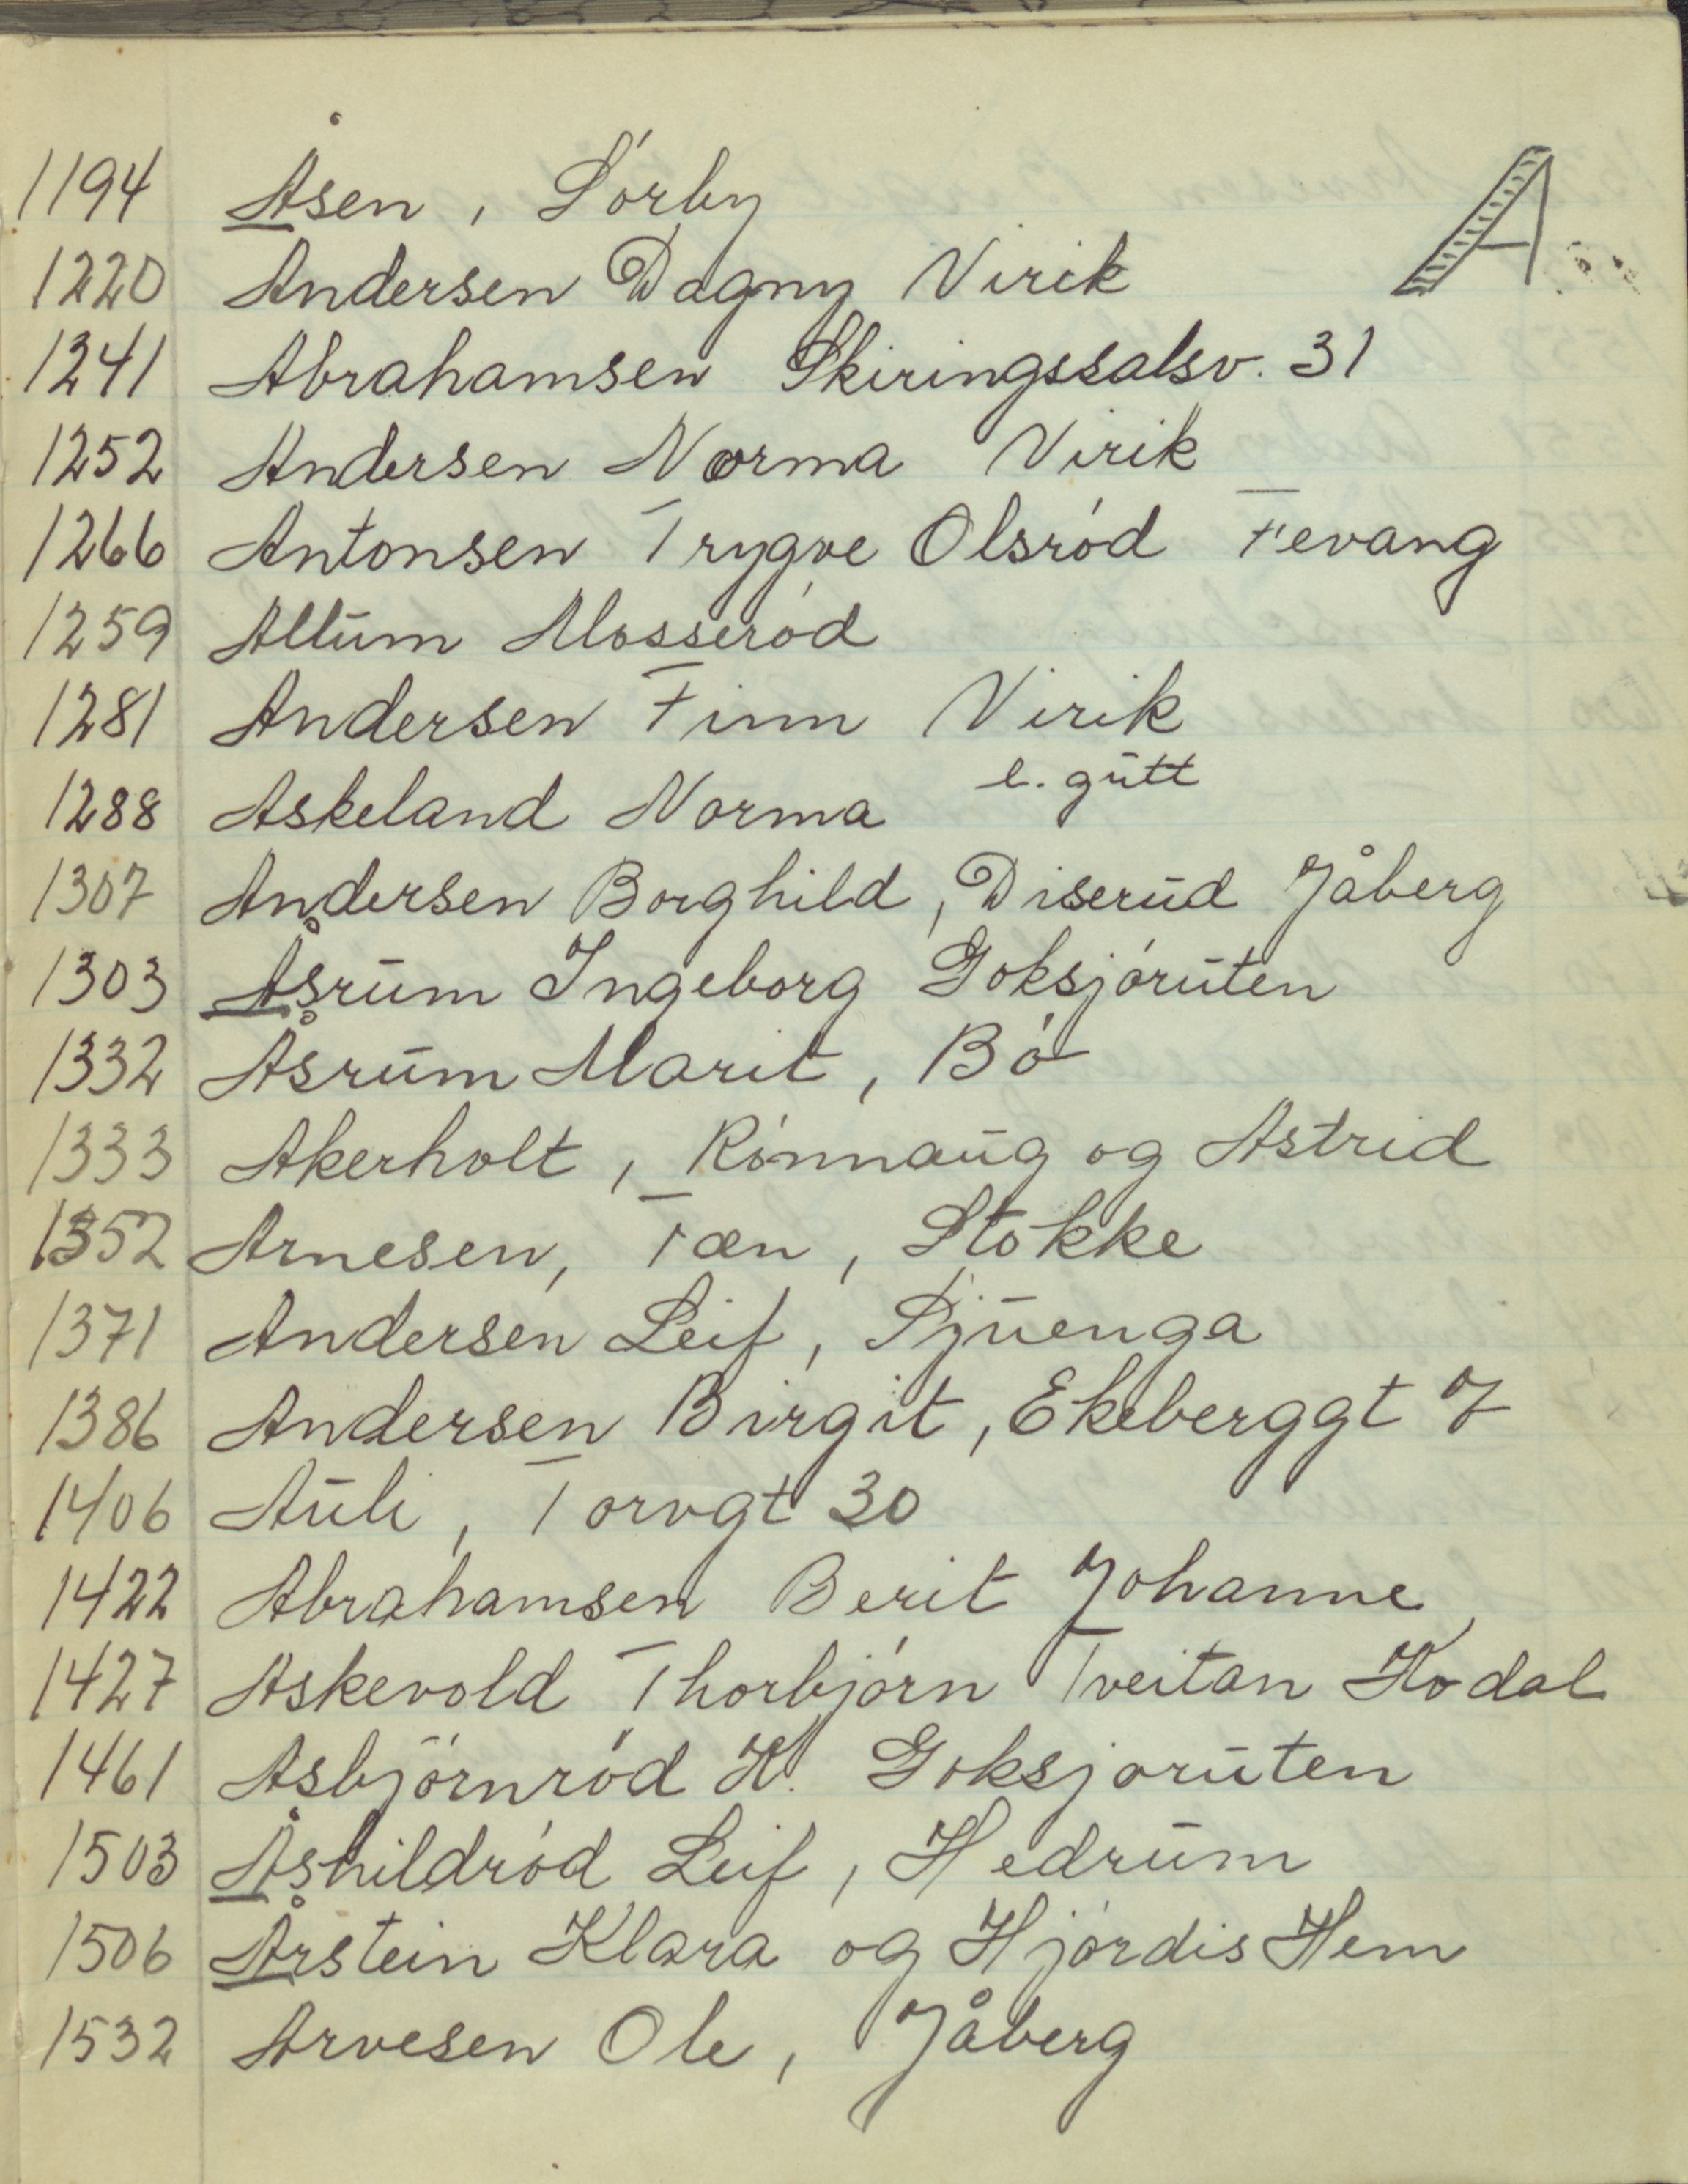 A
1194 Åsen, Sórby
1220 Andersen Dagny Virik
1241 Abrahamsen Skiringssalsv. 31
1252 Andersen Norma Virik
1266 Antonsen Trygve Olsród Fevang
1259 Allum Mosseród
1281 Andersen Finn Virik
l. gutt
1288 Askeland Norma
1307 Andersen Borghild, Diserud Jåberg
1303 Åsrum Ingeborg Goksjóruten
1332 Åsrum Marit, Bó
1333 Akerholt, Rónnaug og Astrid
1352 Arnesen, Fæn, Stokke
1371 Andersen Leif, Sjuenga
1386 Andersen Birgit, Ekeberggt 7
1406 Auli, Torvgt 30
1422 Abrahamsen Berit Johanne
1427 Askevold Thorbjórn Tveitan Kodal
1461 Asbjórnród K. Goksjoruten
1503 Åshildród Leif, Hedrum
1506 Årstein Klara og Hjórdis Hem
1532 Arvesen Ole, Jåberg